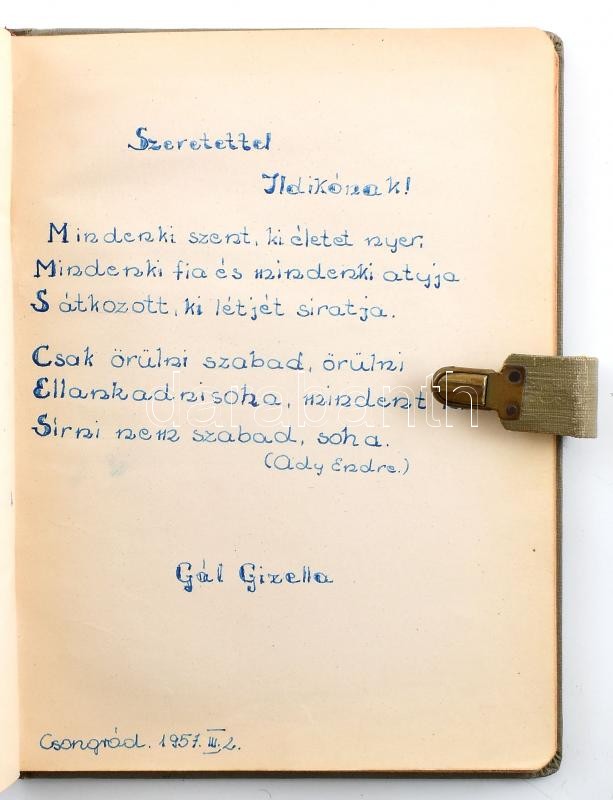 Szeretettel
Ildikónak!
Mindenki szent, ki életet nyer,
Mindenki fia és mindenki atyja
S átkozott, ki létjét siratja.
Csak örülni szabad, örülni
Ellankadni soha, mindent
Sírni nem szabad, soha.
(Ady Endre.)
Gál Gizella
Csongrád. 1957. III. 2.
darabanth